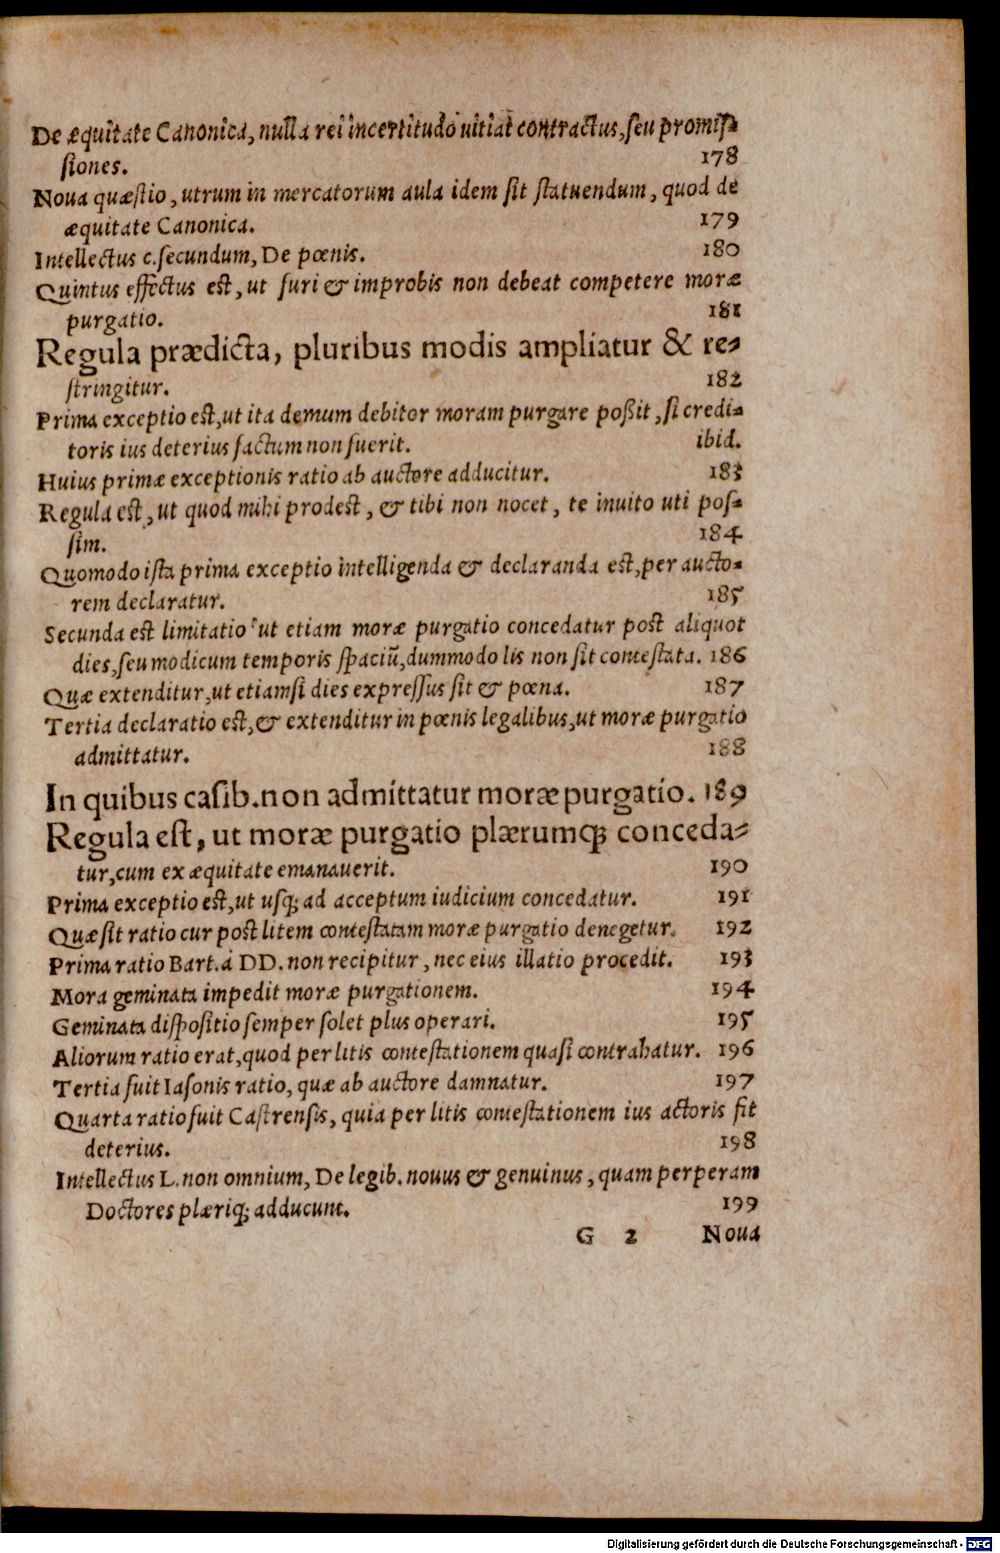 De æquitate Canonica, nulla rei incertitudo uitiat contractus, seu promis-
siones. 178
Noua quæstio, utrum in mercatorum aula idem sit statuendum, quod de
æquitate Canonica. 179
Intellectus c. secundum, De pœnis. 180
Quintus effectus est, ut furi & improbis non debeat competere moræ
purgatio. 181
Regula prædicta, pluribus modis ampliatur & re-
stringitur. 182
Prima exceptio est, ut ita demum debitor moram purgare poßit, si credi-
toris ius deterius factum non fuerit. ibid.
Huius primæ exceptionis ratio ab auctore adducitur. 183
Regula est, ut quod mihi prodest, & tibi non nocet, te inuito uti pos-
sim. 184
Quomodo ista prima exceptio intelligenda & declaranda est, per aucto-
rem declaratur. 185
Secunda est limitatio ut etiam moræ purgatio concedatur post aliquot
dies, seu modicum temporis spaciũ, dummodo lis non sit contestata. 186
Quæ extenditur, ut etiamsi dies expressus sit & pœna. 187
Tertia declaratio est, & extenditur in pœnis legalibus, ut moræ purgatio
admittatur. 188
In quibus casib. non admittatur moræ purgatio. 189
Regula est, ut moræ purgatio plærumq; conceda-
tur, cum ex æquitate emanauerit. 190
Prima exceptio est, ut usq; ad acceptum iudicium concedatur. 191
Quæ sit ratio cur post litem contestatam moræ purgatio denegetur. 192
Prima ratio Bart. à DD. non recipitur, nec eius illatio procedit. 193
Mora geminata impedit moræ purgationem. 194
Geminata dispositio semper solet plus operari. 195
Aliorum ratio erat, quod per litis contestationem quasi contrahatur. 196
Tertia fuit Iasonis ratio, quæ ab auctore damnatur. 197
Quarta ratio fuit Castrensis, quia per litis contestationem ius actoris fit
deterius. 198
Intellectus L. non omnium, De legib. nouus & genuinus, quam perperam
Doctores plæriq; adducunt. 199
G 2 Noua
Digitalisierung gefördert durch die Deutsche Forschungsgemeinschaft - DFG